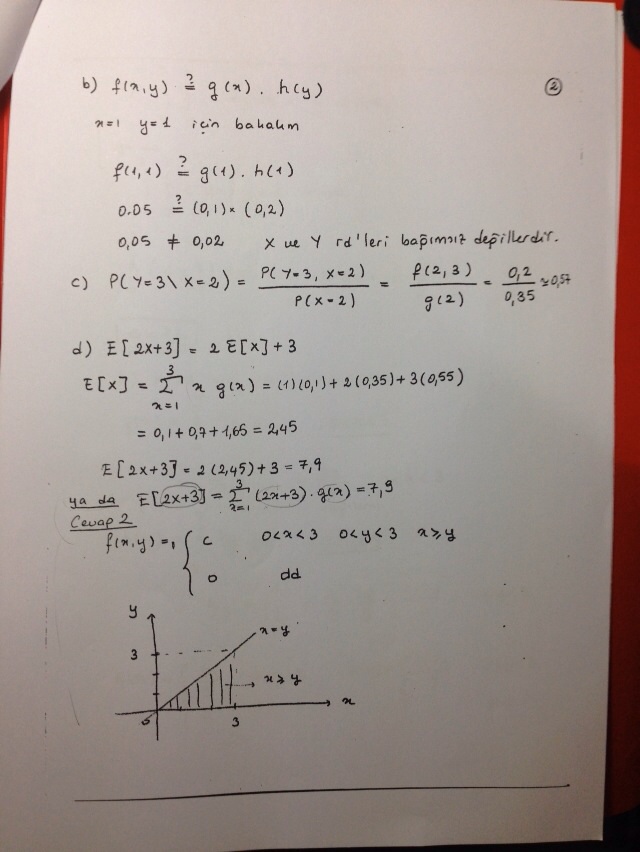 ②
b) f(x,y) ≟ g(x) . h(y)
x=1 y=1 için bakalım
f(1,1) ≟ g(1) . h(1)
0.05 ≟ (0,1) × (0,2)
0,05 ≠ 0,02 X ve Y rd'leri bağımsız değillerdir.
c) P(Y=3 \ X=2) = P(Y=3, X=2) / P(X=2) = f(2,3) / g(2) = 0,2 / 0,35 ≅ 0,57
d) E[2X+3] = 2 E[X] + 3
E[X] = 3 Σ x=1 x g(x) = (1)(0,1) + 2(0,35) + 3(0,55)
= 0,1 + 0,7 + 1,65 = 2,45
E[2X+3] = 2(2,45) + 3 = 7,9
ya da E[2X+3] = 3 Σ x=1 (2x+3) . g(x) = 7,9
Cevap 2
f(x,y) = { c 0<x<3 0<y<3 x≥y
0 dd
y
x=y
3
x≥y
x
0
3